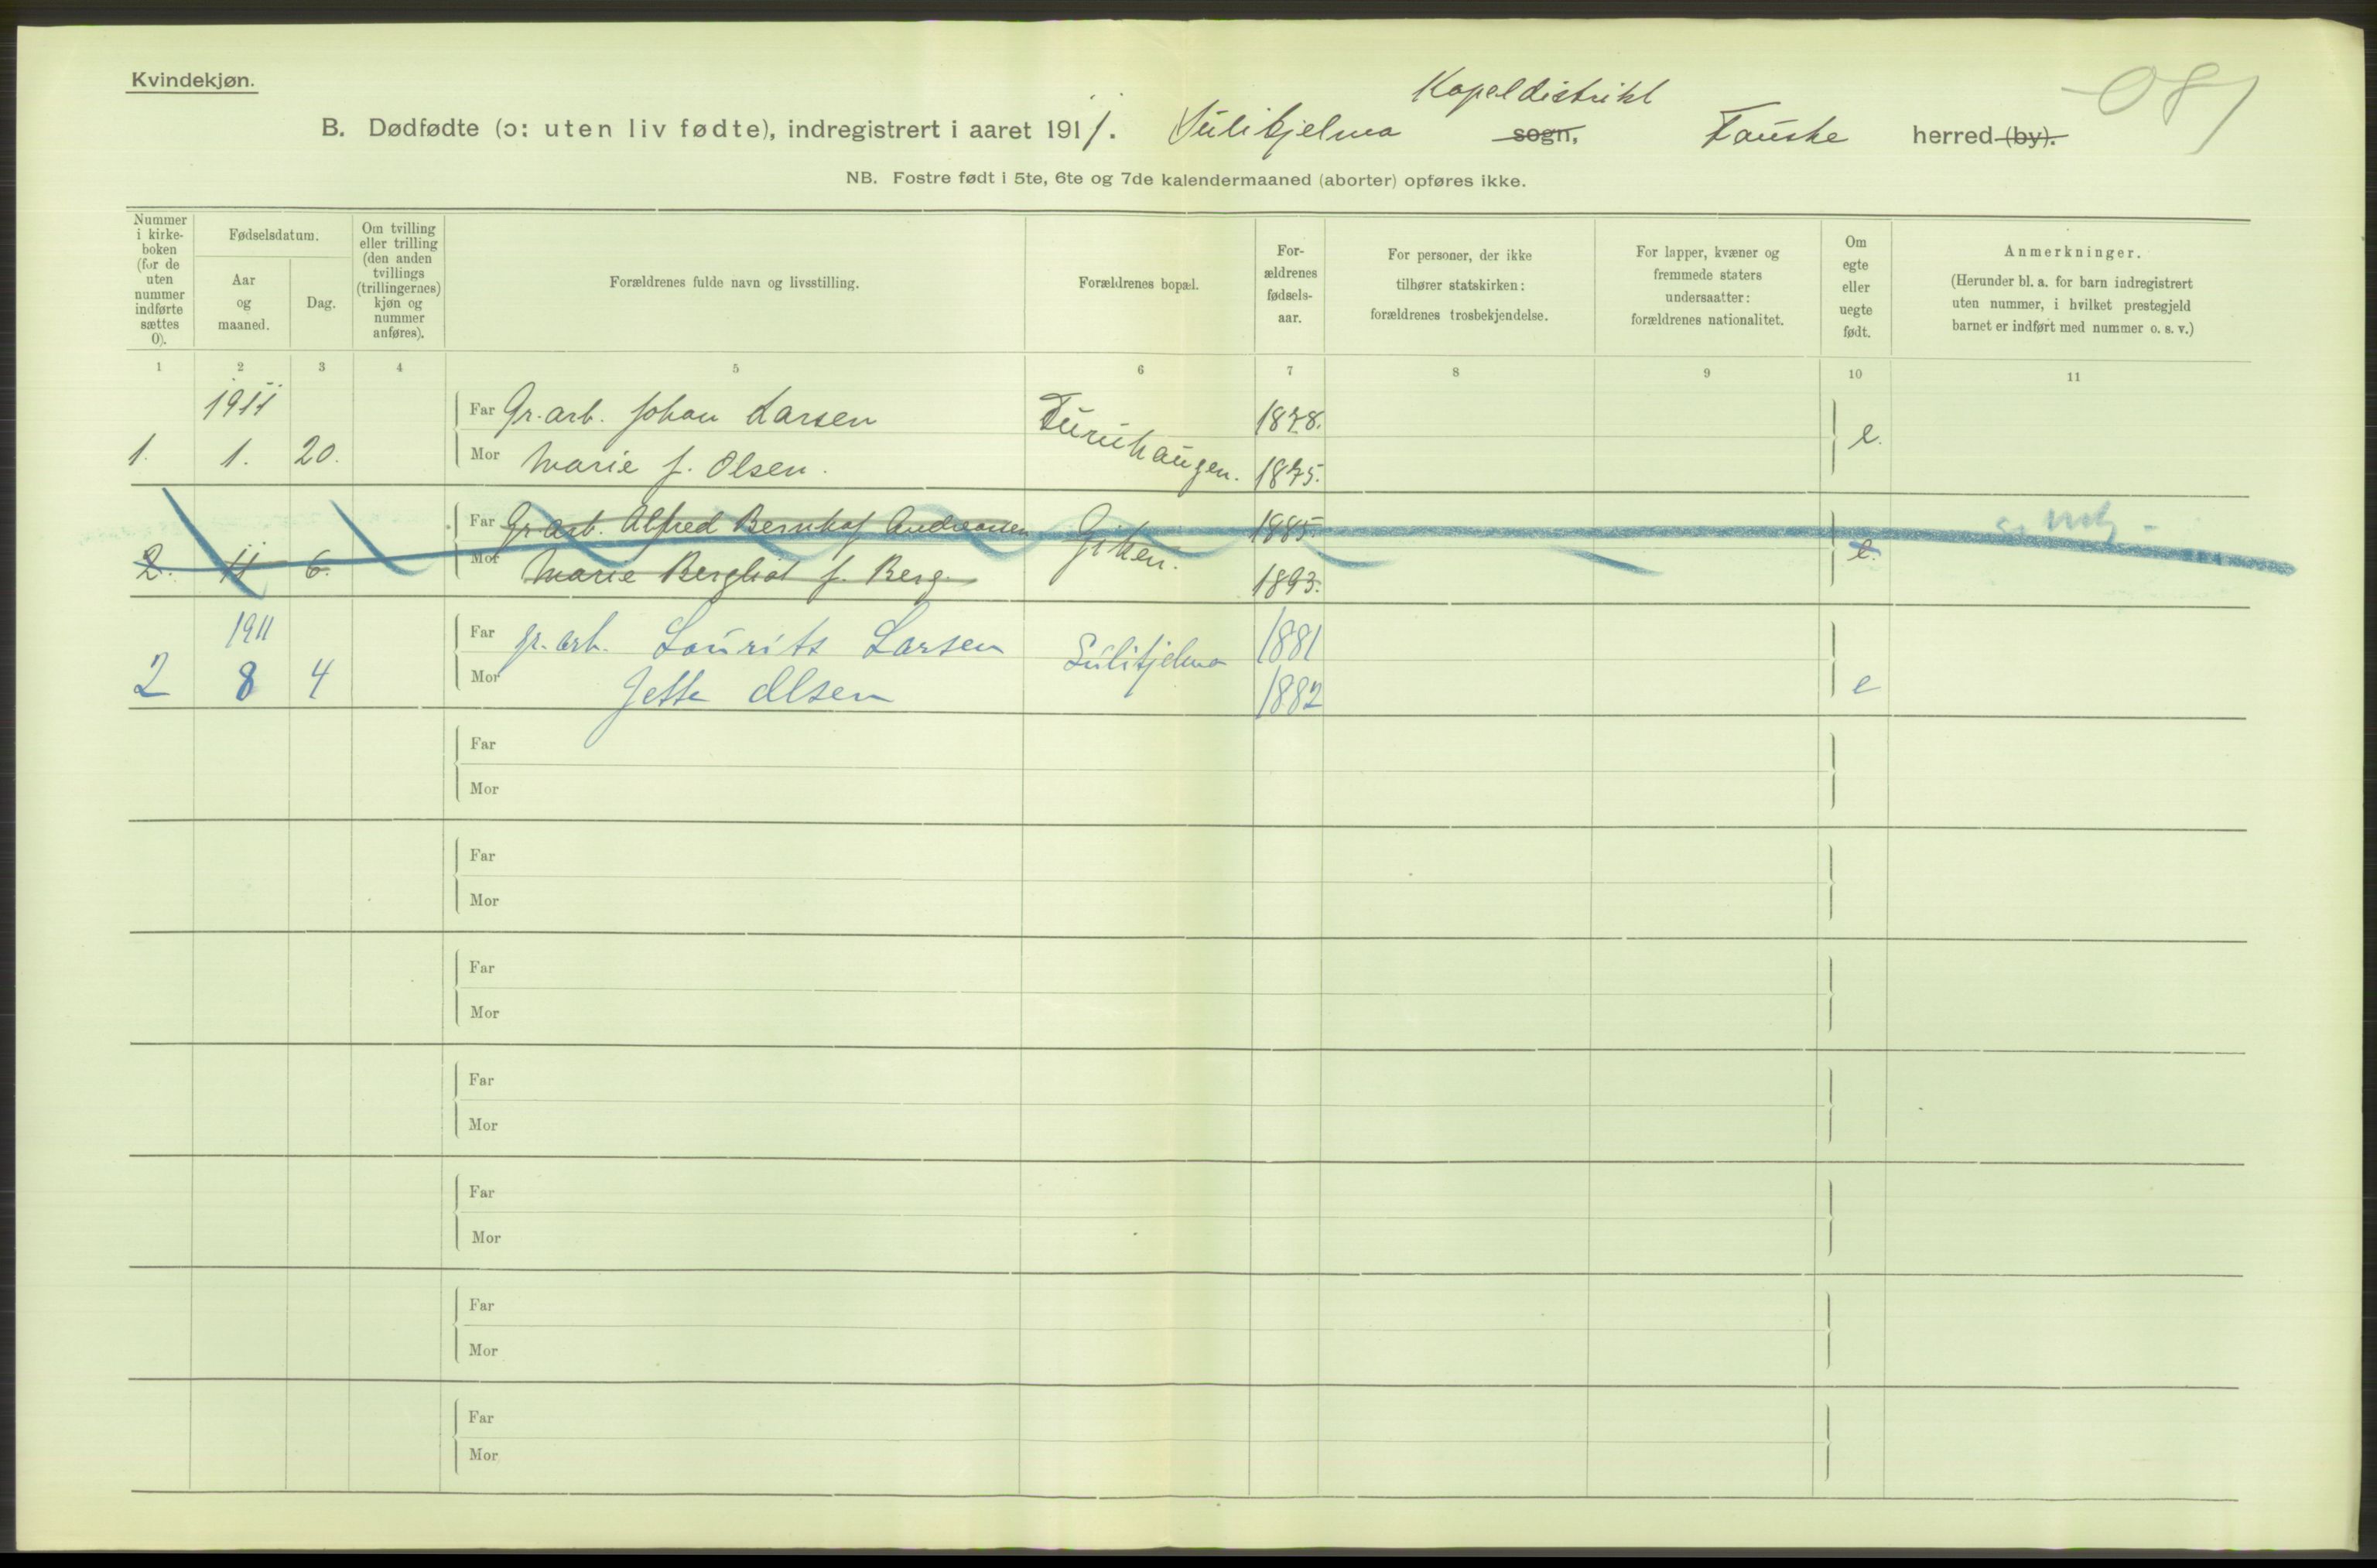 Kvindekjøn.
Kapeldistrikt
B. Dødfødte (ɔ: uten liv fødte), indregistrert i aaret 1911. Sulitjelma sogn, Fauske herred (by).
NB. Fostre født i 5te, 6te og 7de kalendermaaned (aborter) opføres ikke.
Nummer i kirke-boken (for de uten nummer indførte sættes 0).
Fødselsdatum.
Aar og maaned.
Dag.
Om tvilling eller trilling (den anden tvillings (trillingernes) kjøn og nummer anføres).
Forældrenes fulde navn og livsstilling.
Forældrenes bopæl.
For-ældrenes fødsels-aar.
For personer, der ikke tilhører statskirken: forældrenes trosbekjendelse.
For lapper, kvæner og fremmede staters undersaatter: forældrenes nationalitet.
Om egte eller uegte født.
Anmerkninger.
(Herunder bl. a. for barn indregistrert uten nummer, i hvilket prestegjeld barnet er indført med nummer o. s. v.)
1 2 3 4 5 6 7 8 9 10 11
1911
Far Gr.arb. Johan Larsen Furuhaugen. 1878.
1. 1. 20. Mor Marie f. Olsen. 1875. e.
Far Gr.arb. Alfred Bernhof Andreassen Giken. 1885.
2. 11 6. Mor Marie Bergliot f. Berg. 1893. e.
1911
Far gr.arb. Laurits Larsen Sulitjelma 1881
2 8 4 Mor Jette Olsen 1882 e
Far
Mor
Far
Mor
Far
Mor
Far
Mor
Far
Mor
Far
Mor
Far
Mor